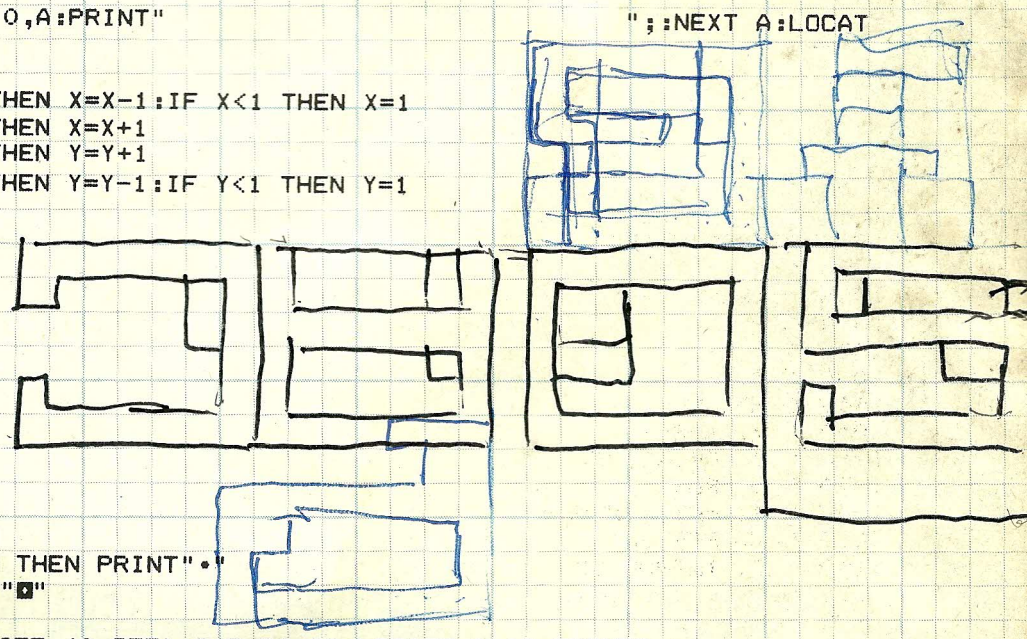 0,A:PRINT" ";:NEXT A:LOCAT
THEN X=X-1:IF X<1 THEN X=1
THEN X=X+1
THEN Y=Y+1
THEN Y=Y-1:IF Y<1 THEN Y=1
THEN PRINT"•"
"◘"